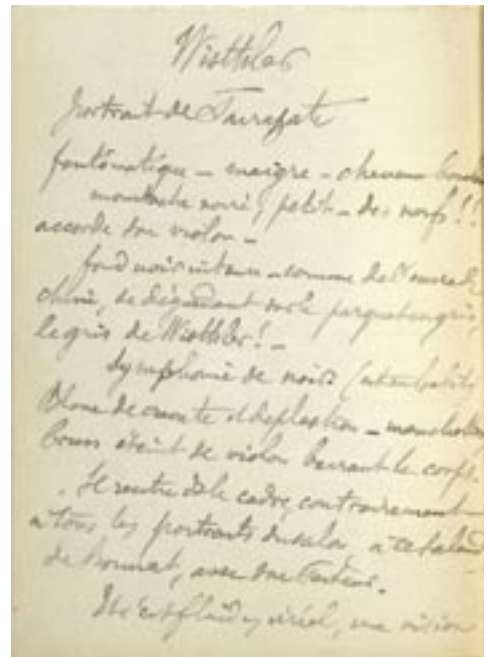 Wisthler
Portrait de Sarasate
fantômatique – maigre – cheveux
moustache noire, petit – des nerfs !!
accorde son violon –
fond noir intense – comme de l'encre de
chine, se dégradant sur le parquet en gris,
le gris de Wisthler ! –
Symphonie de noirs
Blanc de cravate et de plastron – manchettes
brun éteint de violon barrant le corps.
Il rentre ds le cadre, contrairement
à tous les portraits du salon, à ce
de Bonnat, avec son Pasteur.
Ici c'est fluide, irréel, une vision